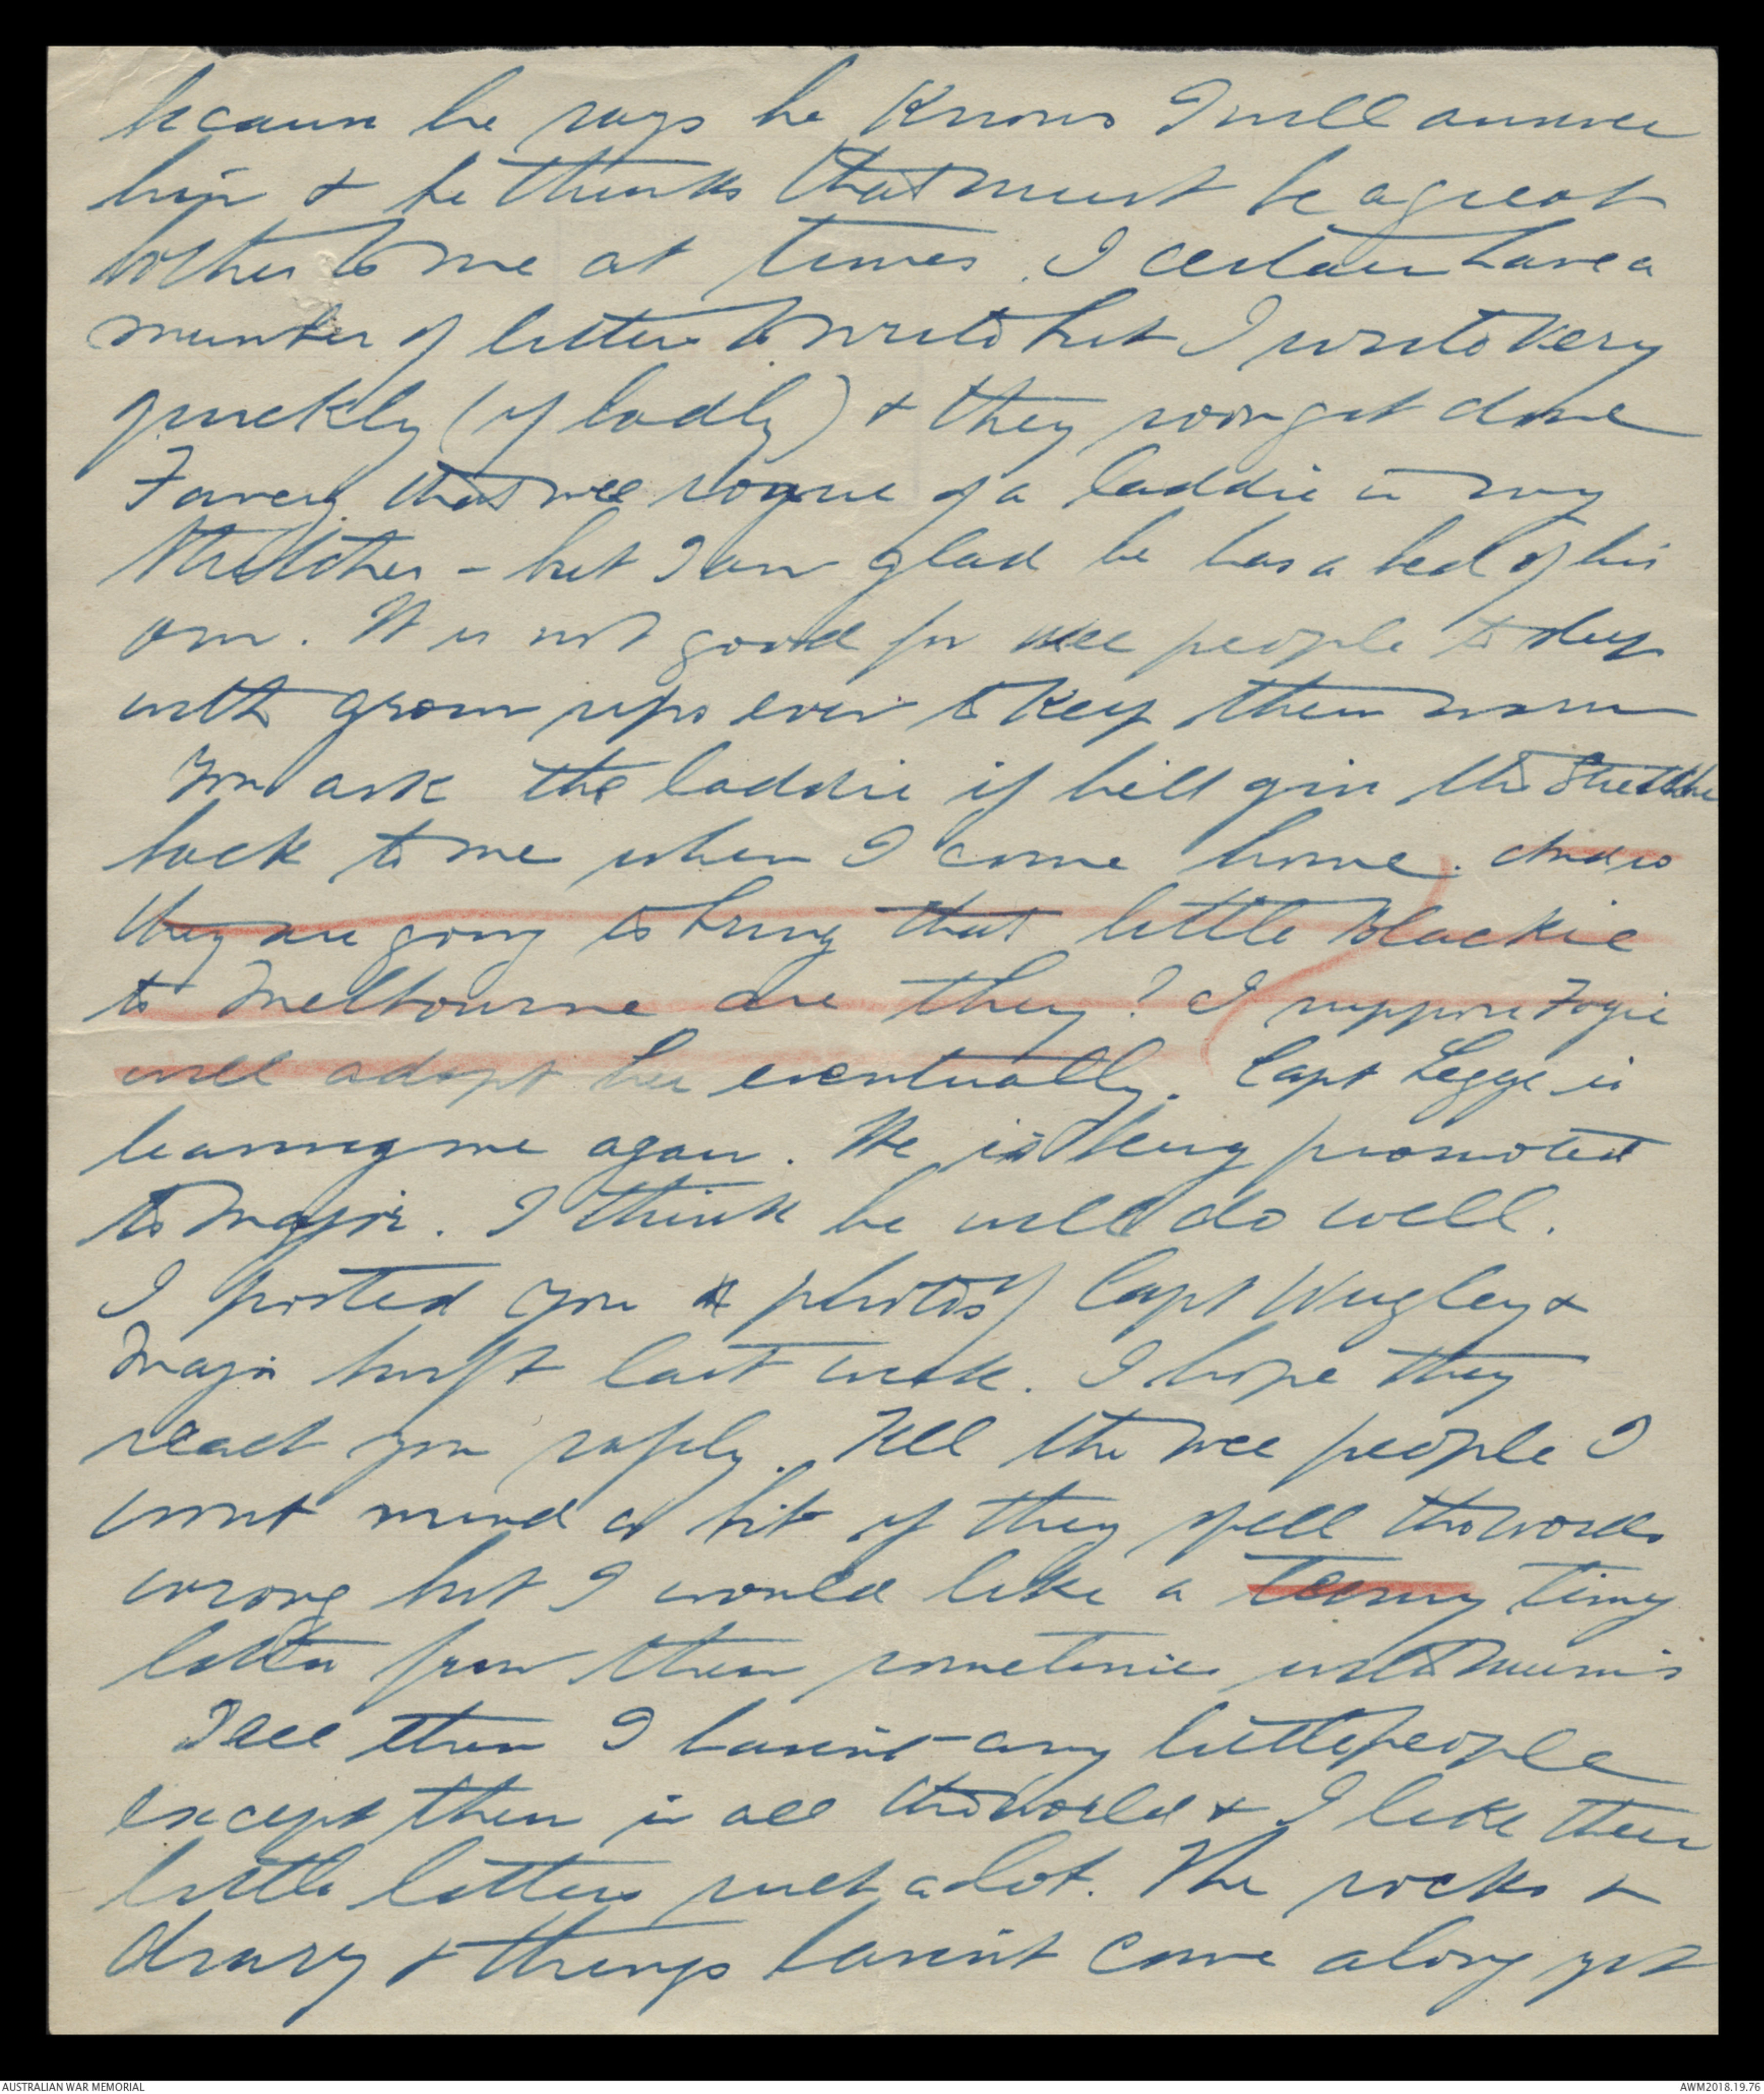 because he says he knows I will answer
him & he thinks that must be a great
bother to me at times. I certain have a
number of letters to write but I write very
quickly (if badly) & they soon get done
Fancy that wee rogue of a laddie in my
stretcher - but I am glad he has a bed of his
own. It is not good for wee people to sleep
with grown ups even to keep them warm
You ask the laddie if he'll give the stretcher
back to me when I come home. And so
they are going to bring that little blackie
to Melbourne are they? I suppose Fogie
will adopt her eventually. Capt Legge is
leaving me again. He is being promoted
to Major. I think he will do well.
I posted you photos of Capt Wrigley &
Major last week. I hope they
reach you safely. Tell the wee people I
wont mind a bit if they spell the words
wrong but I would like a teeny tiny
letter from them sometimes with Mum's
Tell them I haven't any little people
except them in all the world & I like their
little letters such a lot. The socks &
& things haven't come along yet
AUSTRALIAN WAR MEMORIAL
AWM2018.19.76